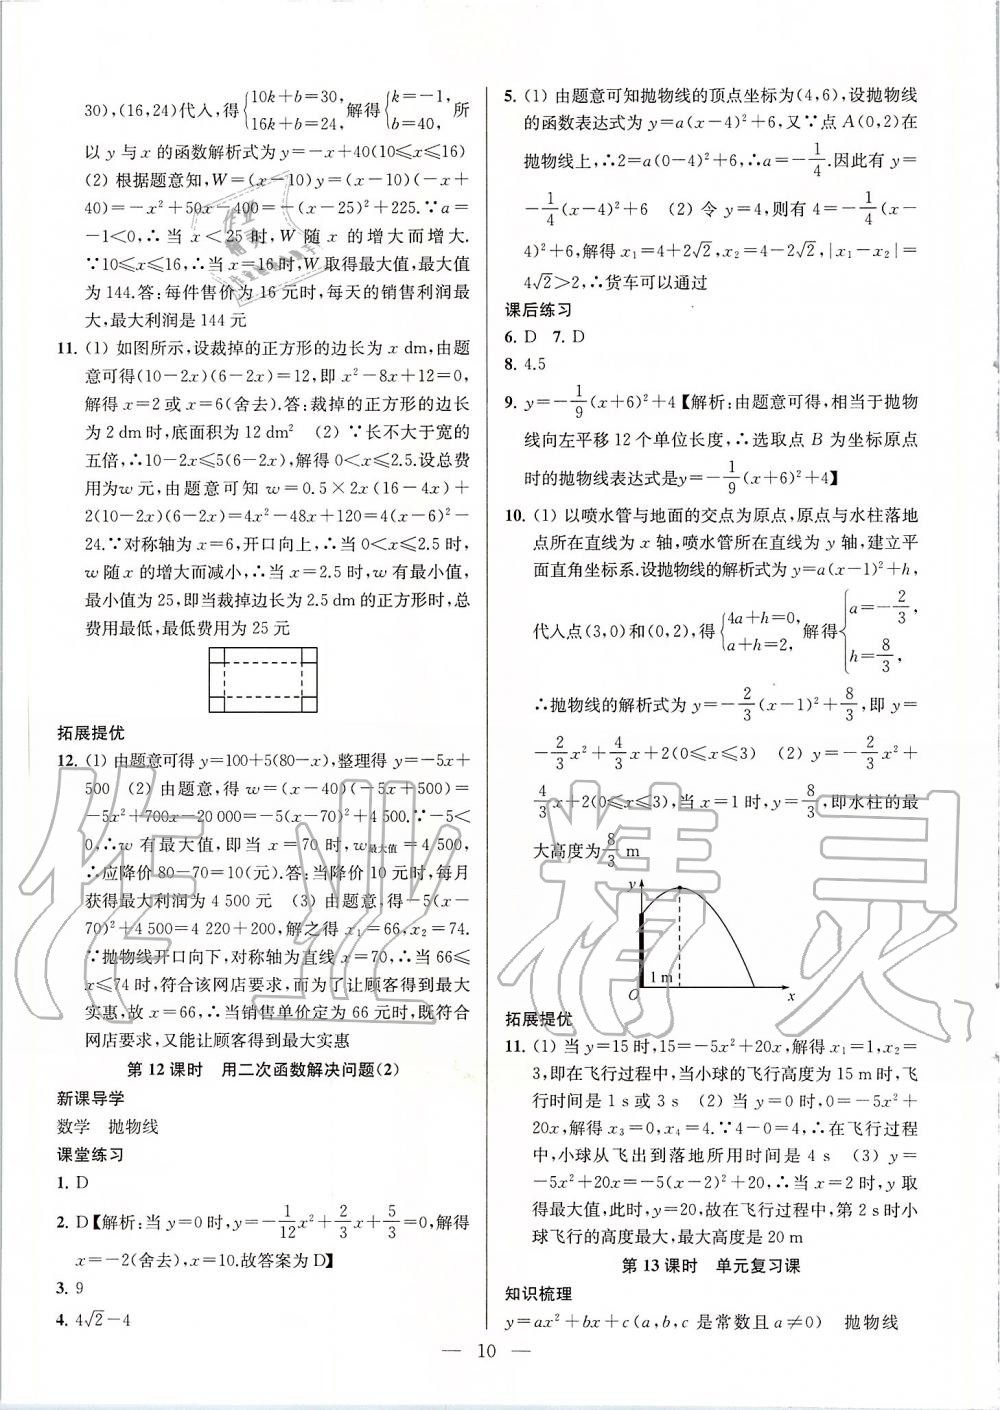 30),(16,24)代入,得{10k+b=30, 16k+b=24, 解得{k=-1, b=40, 所
以 y 与 x 的函数解析式为 y=-x+40(10≤x≤16)
(2) 根据题意知,W=(x-10)y=(x-10)(-x+
40)=-x²+50x-400=-(x-25)²+225.∵a=
-1<0,∴当 x<25 时,W 随 x 的增大而增大.
∵10≤x≤16,∴当 x=16 时,W 取得最大值,最大值
为 144.答:每件售价为 16 元时,每天的销售利润最
大,最大利润是 144 元
11. (1) 如图所示,设裁掉的正方形的边长为 x dm,由题
意可得(10-2x)(6-2x)=12,即 x²-8x+12=0,
解得 x=2 或 x=6(舍去).答:裁掉的正方形的边长
为 2 dm 时,底面积为 12 dm² (2) ∵长不大于宽的
五倍,∴10-2x≤5(6-2x),解得 0<x≤2.5.设总费
用为w 元,由题意可知 w=0.5×2x(16-4x)+
2(10-2x)(6-2x)=4x²-48x+120=4(x-6)²-
24.∵对称轴为 x=6,开口向上,∴当 0<x≤2.5 时,
w 随 x 的增大而减小,∴当 x=2.5 时,w 有最小值,
最小值为 25,即当裁掉边长为 2.5 dm 的正方形时,总
费用最低,最低费用为 25 元
拓展提优
12. (1) 由题意可得 y=100+5(80-x),整理得 y=-5x+
500 (2) 由题意,得 w=(x-40)(-5x+500)=
-5x²+700x-20 000=-5(x-70)²+4 500.∵-5<
0,∴w 有最大值,即当 x=70 时,w最大值=4 500,
∴应降价 80-70=10(元).答:当降价 10 元时,每月
获得最大利润为 4 500 元 (3) 由题意,得-5(x-
70)²+4 500=4 220+200,解之得 x₁=66,x₂=74.
∵抛物线开口向下,对称轴为直线 x=70,∴当 66≤
x≤74 时,符合该网店要求,而为了让顾客得到最大
实惠,故 x=66,∴当销售单价定为 66 元时,既符合
网店要求,又能让顾客得到最大实惠
第 12 课时 用二次函数解决问题(2)
新课导学
数学 抛物线
课堂练习
1. D
2. D【解析:当 y=0 时,y=-1/12x²+2/3x+5/3=0,解得
x=-2(舍去),x=10.故答案为 D】
3. 9
4. 4√2-4
5. (1) 由题意可知抛物线的顶点坐标为(4,6),设抛物线
的函数表达式为 y=a(x-4)²+6,又∵点 A(0,2)在
抛物线上,∴2=a(0-4)²+6,∴a=-1/4.因此有 y=
-1/4(x-4)²+6 (2) 令 y=4,则有 4=-1/4(x-
4)²+6,解得 x₁=4+2√2,x₂=4-2√2,|x₁-x₂|=
4√2>2,∴货车可以通过
课后练习
6. D 7. D
8. 4.5
9. y=-1/9(x+6)²+4【解析:由题意可得,相当于抛物
线向左平移 12 个单位长度,∴选取点 B 为坐标原点
时的抛物线表达式是y=-1/9(x+6)²+4】
10. (1) 以喷水管与地面的交点为原点,原点与水柱落地
点所在直线为 x 轴,喷水管所在直线为 y 轴,建立平
面直角坐标系.设抛物线的解析式为 y=a(x-1)²+h,
代入点(3,0)和(0,2),得{4a+h=0, a+h=2, 解得{a=-2/3, h=8/3,
∴抛物线的解析式为 y=-2/3(x-1)²+8/3,即 y=
-2/3x²+4/3x+2(0≤x≤3) (2) y=-2/3x²+
4/3x+2(0≤x≤3),当 x=1 时,y=8/3,即水柱的最
大高度为8/3 m
y
1 m
O x
拓展提优
11. (1) 当 y=15 时,15=-5x²+20x,解得 x₁=1,x₂=
3,即在飞行过程中,当小球的飞行高度为 15 m 时,飞
行时间为 1 s 或 3 s (2) 当 y=0 时,0=-5x²+
20x,解得 x₃=0,x₄=4.∵4-0=4,∴在飞行过程
中,小球从飞出到落地所用时间是 4 s (3) y=
-5x²+20x=-5(x-2)²+20,∴当 x=2 时,y 取
得最大值,此时,y=20,故在飞行过程中,第 2 s 时小
球飞行的高度最大,最大高度是 20 m
第 13 课时 单元复习课
知识梳理
y=ax²+bx+c(a,b,c 是常数且 a≠0) 抛物线
— 10 —
作业精灵